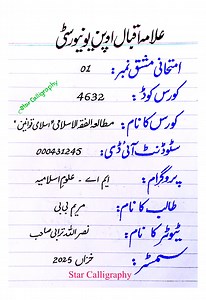 علامہ اقبال اوپن یونیورسٹی
امتحانی مشق نمبر: 01
Star Calligraphy
کورس کوڈ: 4632
کورس کا نام: مطالعہ الفقہ الاسلامی "اسلامی قوانین"
سٹوڈنٹ آئی ڈی: 000431245
پروگرام: ایم اے - علومِ اسلامیہ
طالب کا نام: مریم بی بی
ٹیوٹر کا نام: نصر اللہ ترابی صاحب
سمسٹر: خزاں 2025
Star Calligraphy